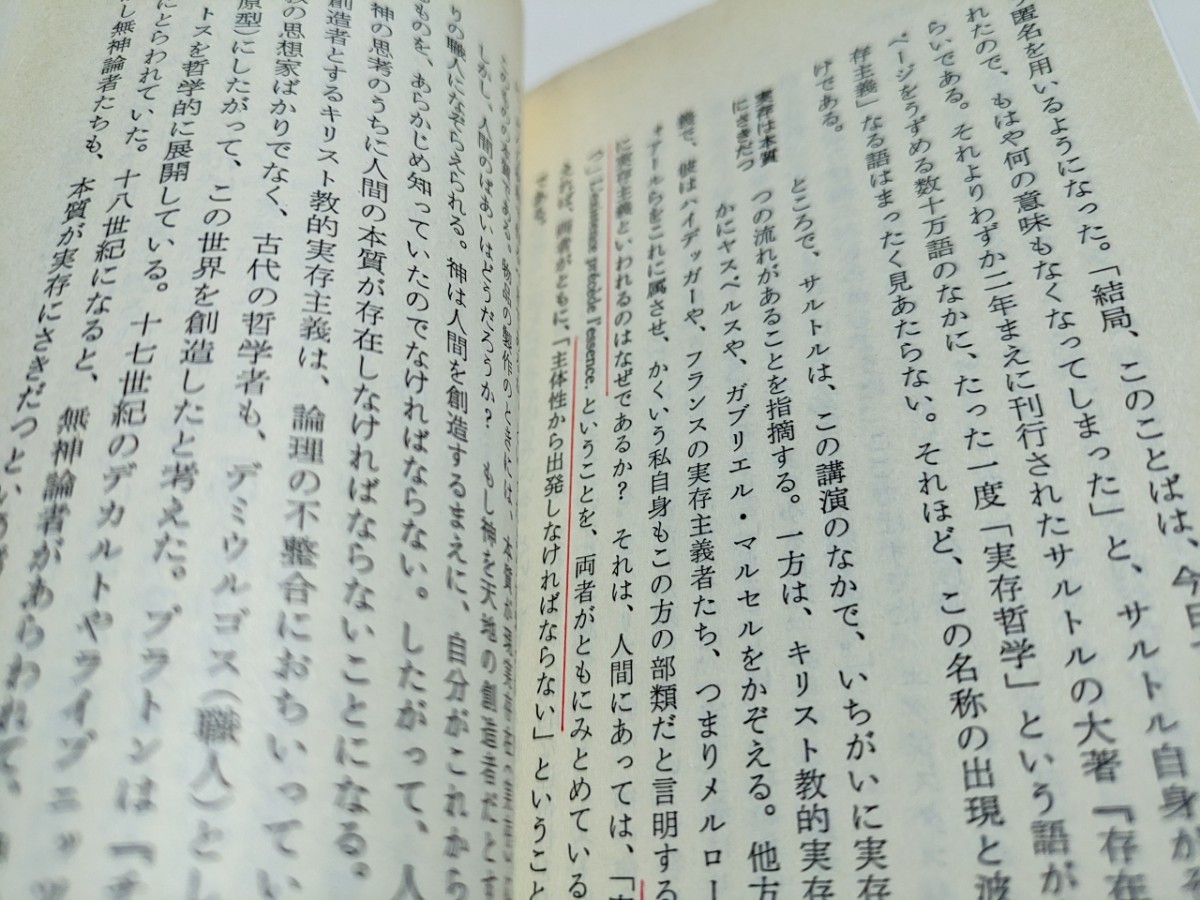 匿名を用いるようになった。「結局、このことば、今日
れたので、もはや何の意味もなくなってしまった」と、サルトル自身が
らいである。それよりわずか二年まえに刊行されたサルトルの大著『存在
ページをうずめる数十万語のなかに、たった一度「実存哲学」という語が
存主義」なる語はまったく見あたらない。それほど、この名称の出現と波
けである。
実存は本質
にさきだつ
ところで、サルトルは、この講演のなかで、いちがいに実存
つの流れがあることを指摘する。一方は、キリスト教的実存
かにヤスペルスや、ガブリエル・マルセルをかぞえる。他方
義で、彼はハイデッガーや、フランスの実存主義者たち、つまりメルロー
らをこれに属させ、かくいう私自身もこの方の部類だと言明する
に実存主義といわれるのはなぜであるか？　それは、人間にあっては、「
つ」L'existence précède l'essence. ということを、両者がともにみとめている
えれば、両者がともに、「主体性から出発しなければならない」ということ
である。
物品の製作のときには、本質が
しかし、人間のばあいはどうだろうか？　もし神を天地の創造者だとす
りの職人になぞらえられる。神は人間を創造するまえに、自分がこれから
ものを、あらかじめ知っていたのでなければならない。したがって、人
神の思考のうちに人間の本質が存在しなければならないことになる。
創造者とするキリスト教的実存主義は、論理の不整合におちいってい
の思想家ばかりでなく、古代の哲学者も、デミウルゴス（職人）とし
原型）にしたがって、この世界を創造したと考えた。プラトンは『
トスを哲学的に展開している。十七世紀のデカルトやライプニッツ
にとらわれていた。十八世紀になると、無神論者があらわれて、
し無神論者たちも、本質が実存にさきだつという